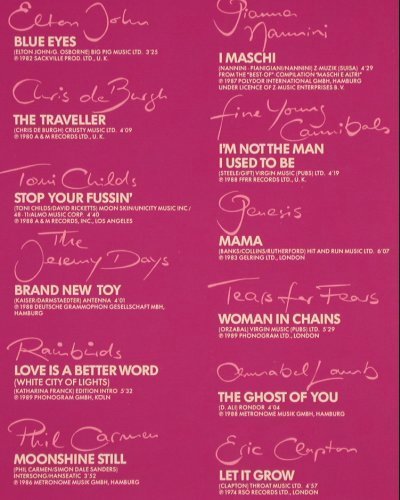 Elton John
BLUE EYES
(ELTON JOHN/G. OSBORNE) BIG PIG MUSIC LTD. 3'25
℗ 1982 SACKVILLE PROD. LTD., U. K.
Chris de Burgh
THE TRAVELLER
(CHRIS DE BURGH) CRUSTY MUSIC LTD. 4'09
℗ 1980 A & M RECORDS LTD., U. K.
Toni Childs
STOP YOUR FUSSIN'
(TONI CHILDS/DAVID RICKETTS) MOON SKIN/UNICITY MUSIC INC /
48-11/ALMO MUSIC CORP. 4'40
℗ 1988 A & M RECORDS, INC., LOS ANGELES
The
Jeremy Days
BRAND NEW TOY
(KAISER/DARMSTAEDTER) ANTENNA 4'01
℗ 1988 DEUTSCHE GRAMMOPHON GESELLSCHAFT MBH,
HAMBURG
Rainbirds
LOVE IS A BETTER WORD
(WHITE CITY OF LIGHTS)
(KATHARINA FRANCK) EDITION INTRO 5'32
℗ 1989 PHONOGRAM GMBH, KÖLN
Phil Carmen
MOONSHINE STILL
(PHIL CARMEN/SIMON DALE SANDERS)
INTERSONG/HANSEATIC 3'52
℗ 1986 METRONOME MUSIC GMBH, HAMBURG
Gianna
Nannini
I MASCHI
(NANNINI-PIANIGIANI/NANNINI) Z-MUZIK (SUISA) 4'29
FROM THE "BEST-OF" COMPILATION "MASCHI E ALTRI"
℗ 1987 POLYDOR INTERNATIONAL GMBH, HAMBURG
UNDER LICENCE OF Z-MUSIC ENTERPRISES B. V.
Fine Young
Cannibals
I'M NOT THE MAN
I USED TO BE
(STEELE/GIFT) VIRGIN MUSIC (PUBS) LTD. 4'19
℗ 1988 FFRR RECORDS LTD., U. K.
Genesis
MAMA
(BANKS/COLLINS/RUTHERFORD) HIT AND RUN MUSIC LTD. 6'07
℗ 1983 GELRING LTD., LONDON
Tears for Fears
WOMAN IN CHAINS
(ORZABAL) VIRGIN MUSIC (PUBS) LTD. 5'29
℗ 1989 PHONOGRAM LTD., LONDON
Annabel Lamb
THE GHOST OF YOU
(D. ALE RONDOR 4'04
℗ 1988 METRONOME MUSIC GMBH, HAMBURG
Eric Clapton
LET IT GROW
(CLAPTON) THROAT MUSIC LTD. 4'57
℗ 1974 RSO RECORDS LTD., LONDON